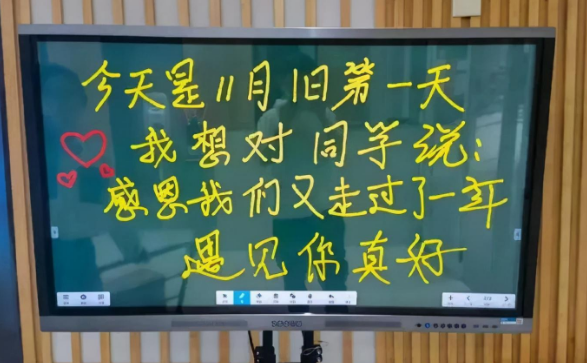 今天是11月1日第一天
我想对同学说:
感恩我们又走过了一年
遇见你真好
seewo